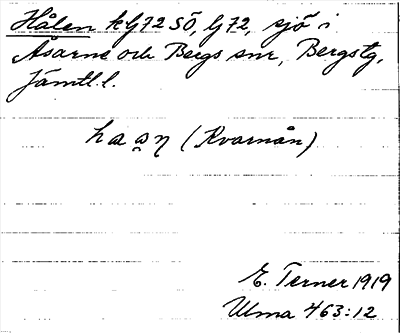 Hålen kLj72 SÖ, Lj72, sjö i
Åsarne och Bergs snr, Bergs tg,
Jämtl. l.
(Kvarnån)
E. Terner 1919
Ulma 463:12